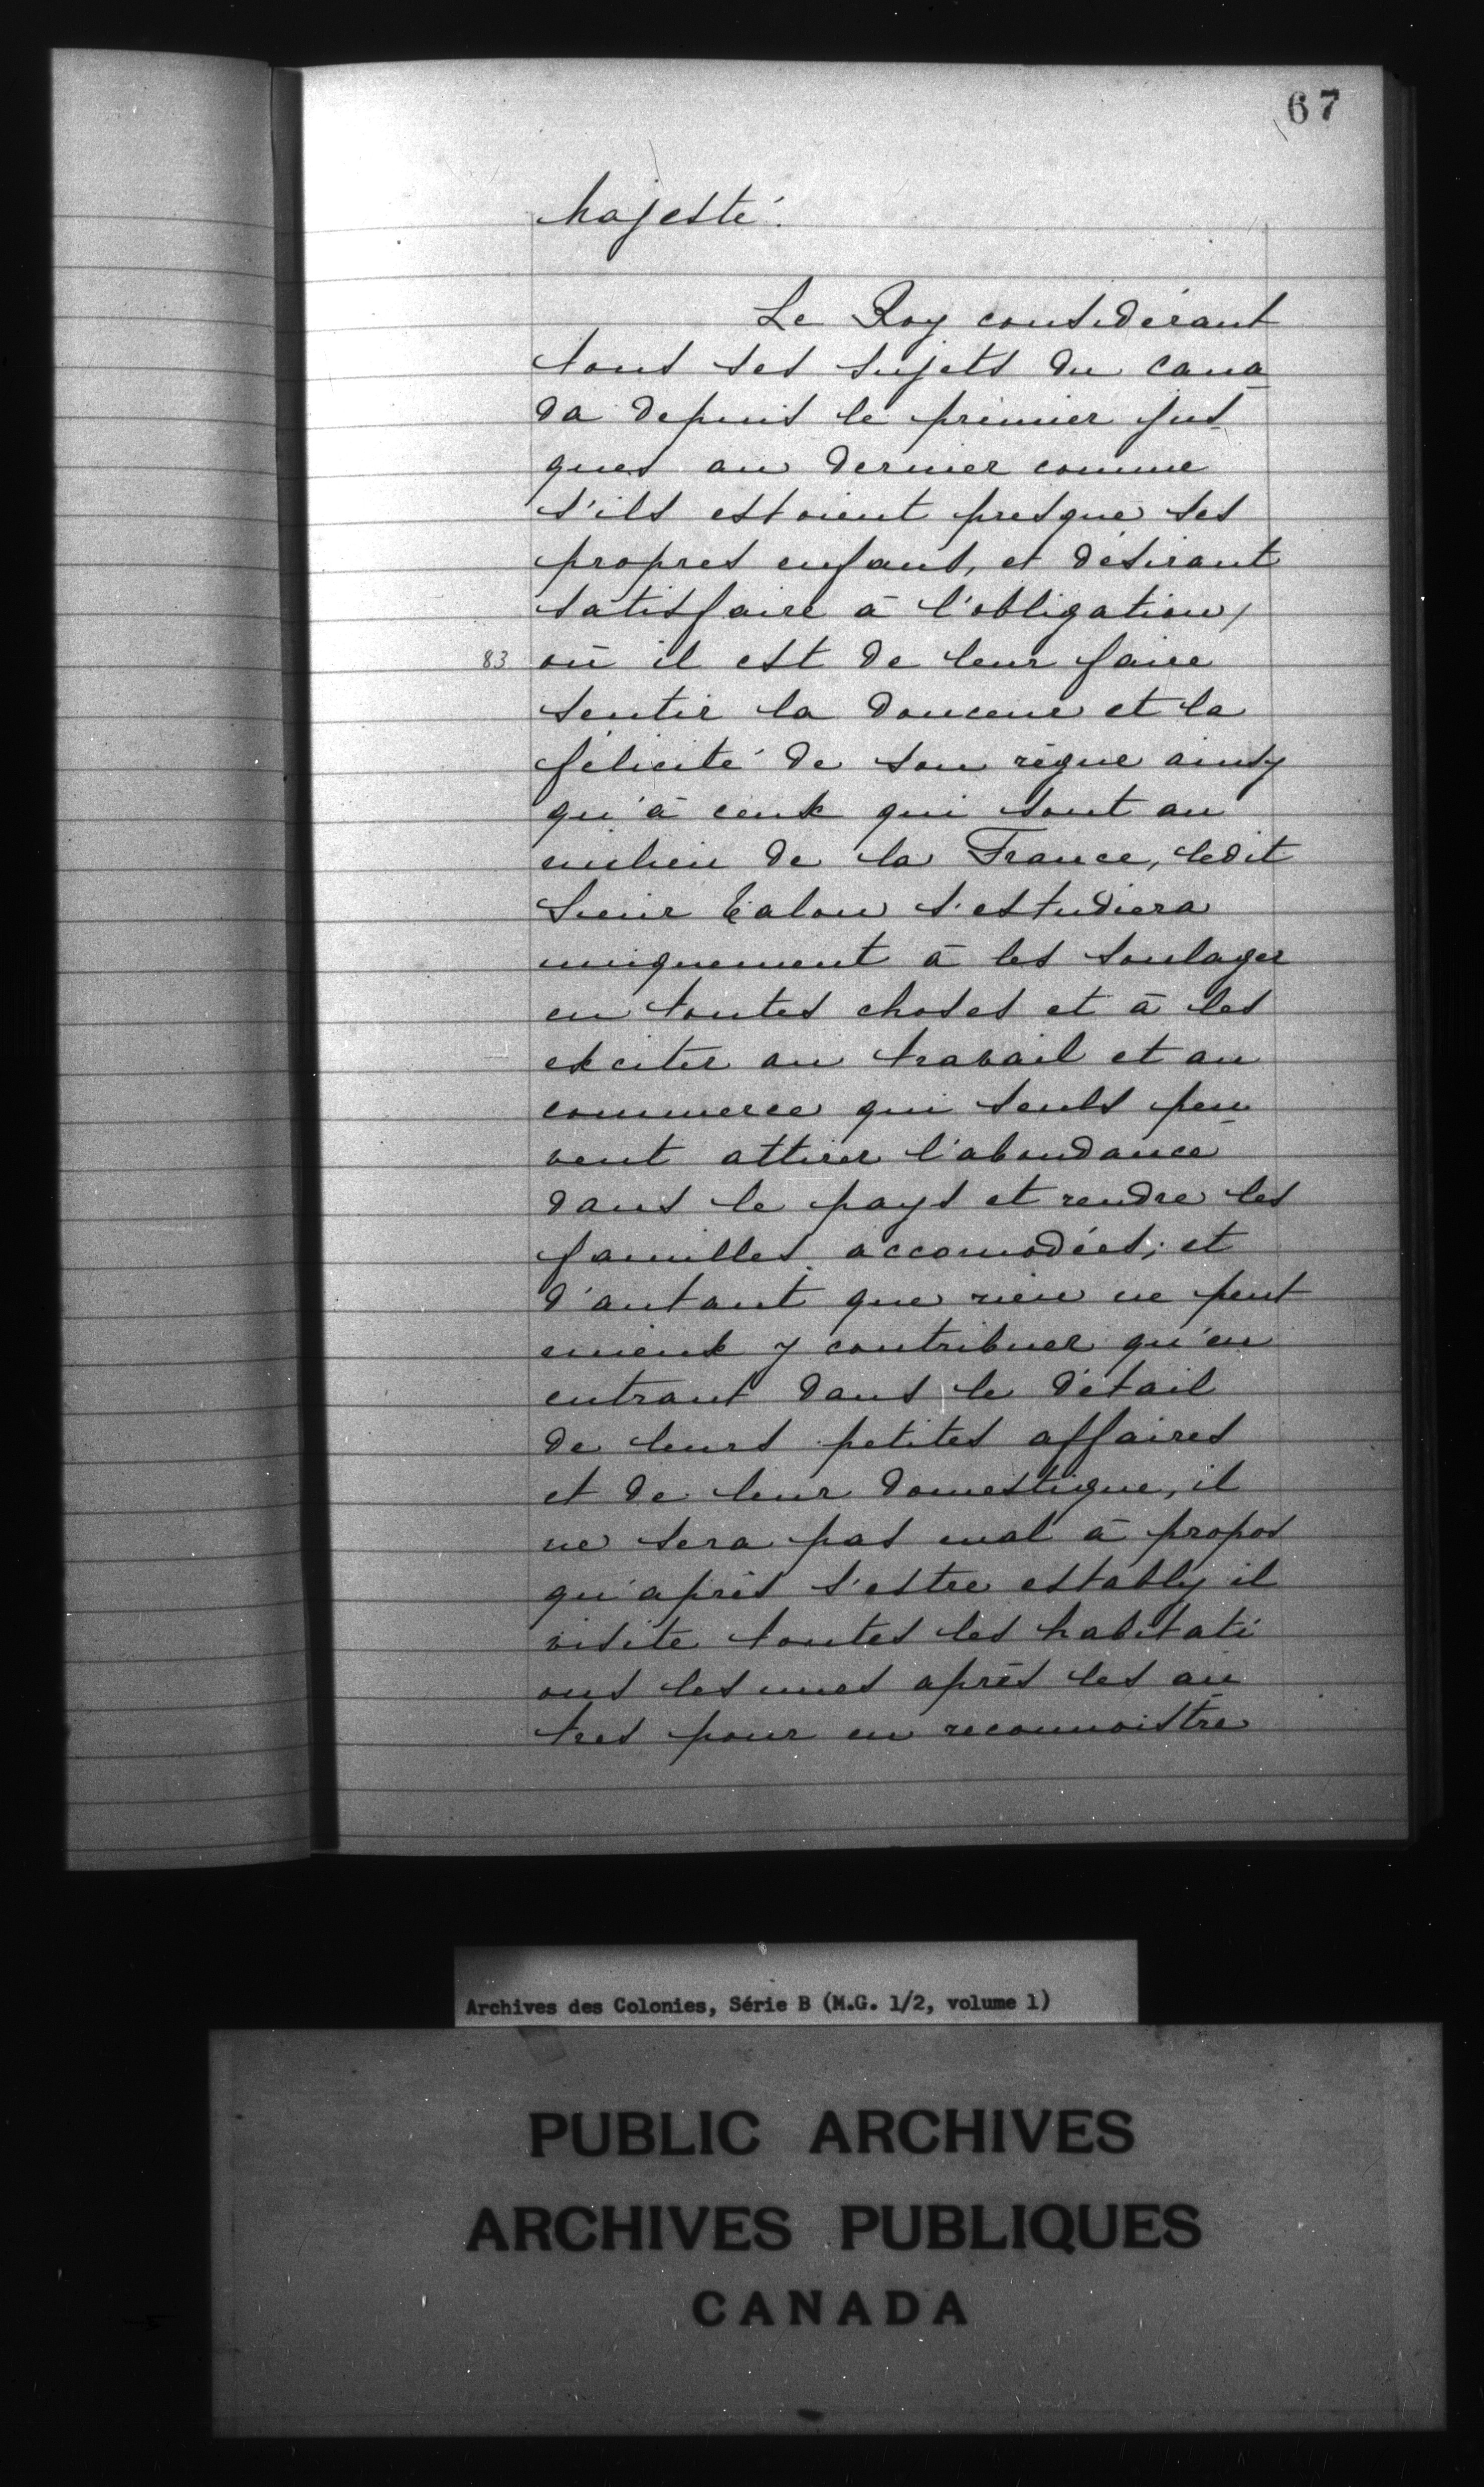 67
Majesté.
Le Roy considérant
tous ses sujets du cana
da depuis le premier jus-
ques au dernier comme
s'ils estoient presque ses
propres enfans, et désirant
satisfaire à l'obligation,
83 où il est de leur faire
sentir la douceur et la
félicité de son règne ainsy
qu'à ceux qui sont au
milieu de la France, ledit
Sieur Talon s'estudiera
uniquement à les soulager
en toutes choses et à les
exciter au travail et au
commerce qui seuls peu
vent attirer l'abondance
dans le pays et rendre les
familles accomodées; et
d'autant que rien ne peut
mieux y contribuer qu'en
entrant dans le détail
de leurs petites affaires
et de leur domestique, il
ne sera pas mal à propos
qu'après s'estre estably il
visite toutes les habitati
ons les unes après les au
tres pour en reconnoistre
Archives des Colonies, Série B (M.G. 1/2, volume 1)
PUBLIC ARCHIVES
ARCHIVES PUBLIQUES
CANADA